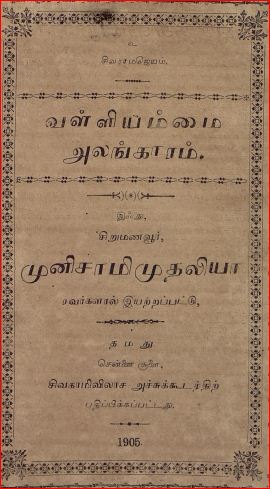 உ
சிவாசமஜெயம்.
வள்ளியம்மை
அலங்காரம்.
இஃது,
சிறுமணவூர்,
முனிசாமிமுதலியா
ரவர்களால் இயற்றப்பட்டு,
தமது
சென்னை சூளை,
சிவகாமிவிலாச அச்சுக்கூடத்திற்
பதிப்பிக்கப்பட்டது.
1905.